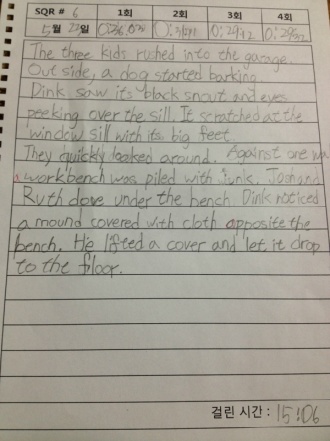 SQR # 6 1회 2회 3회 4회
5월 23일
The three kids rushed into the garage.
Out side, a dog started barking.
Dink saw its black snout and eyes
peeking over the sill. It scratched at the
window sill with its big feet.
They quickly looked around. Against one
workbench was piled with junk. Josh and
Ruth dove under the bench. Dink noticed
a mound covered with cloth opposite the
bench. He lifted a cover and let it drop
to the floor.
걸린 시간 : 15:06